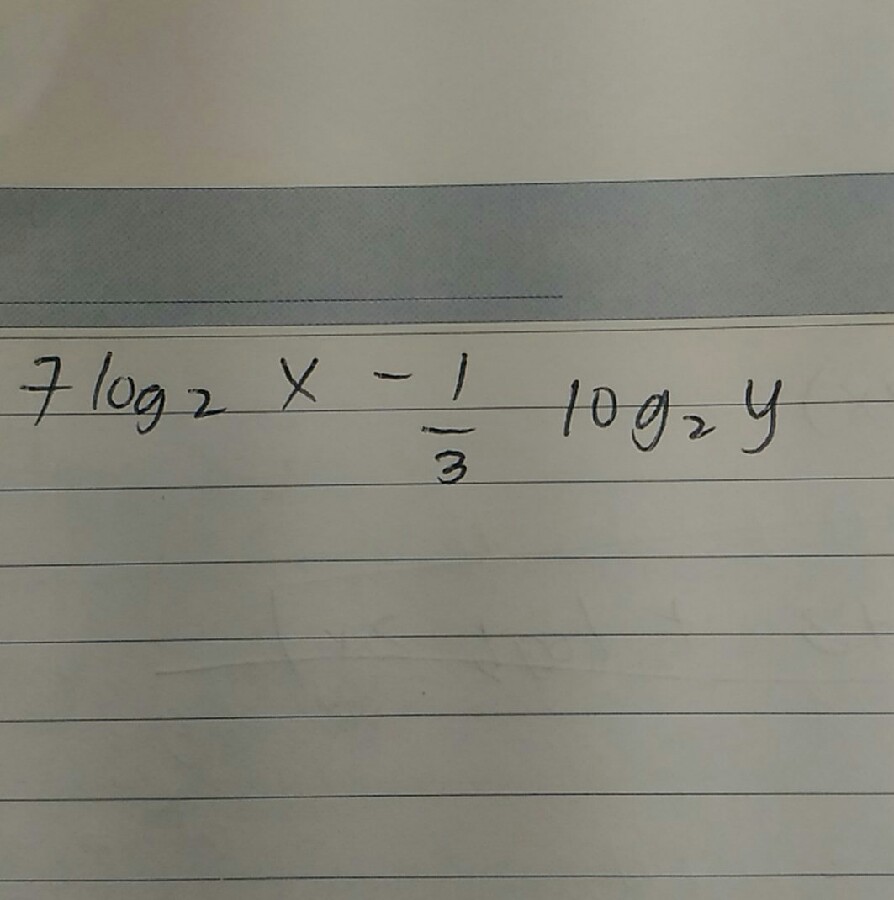 7 log₂ x - 1/3 log₂ y